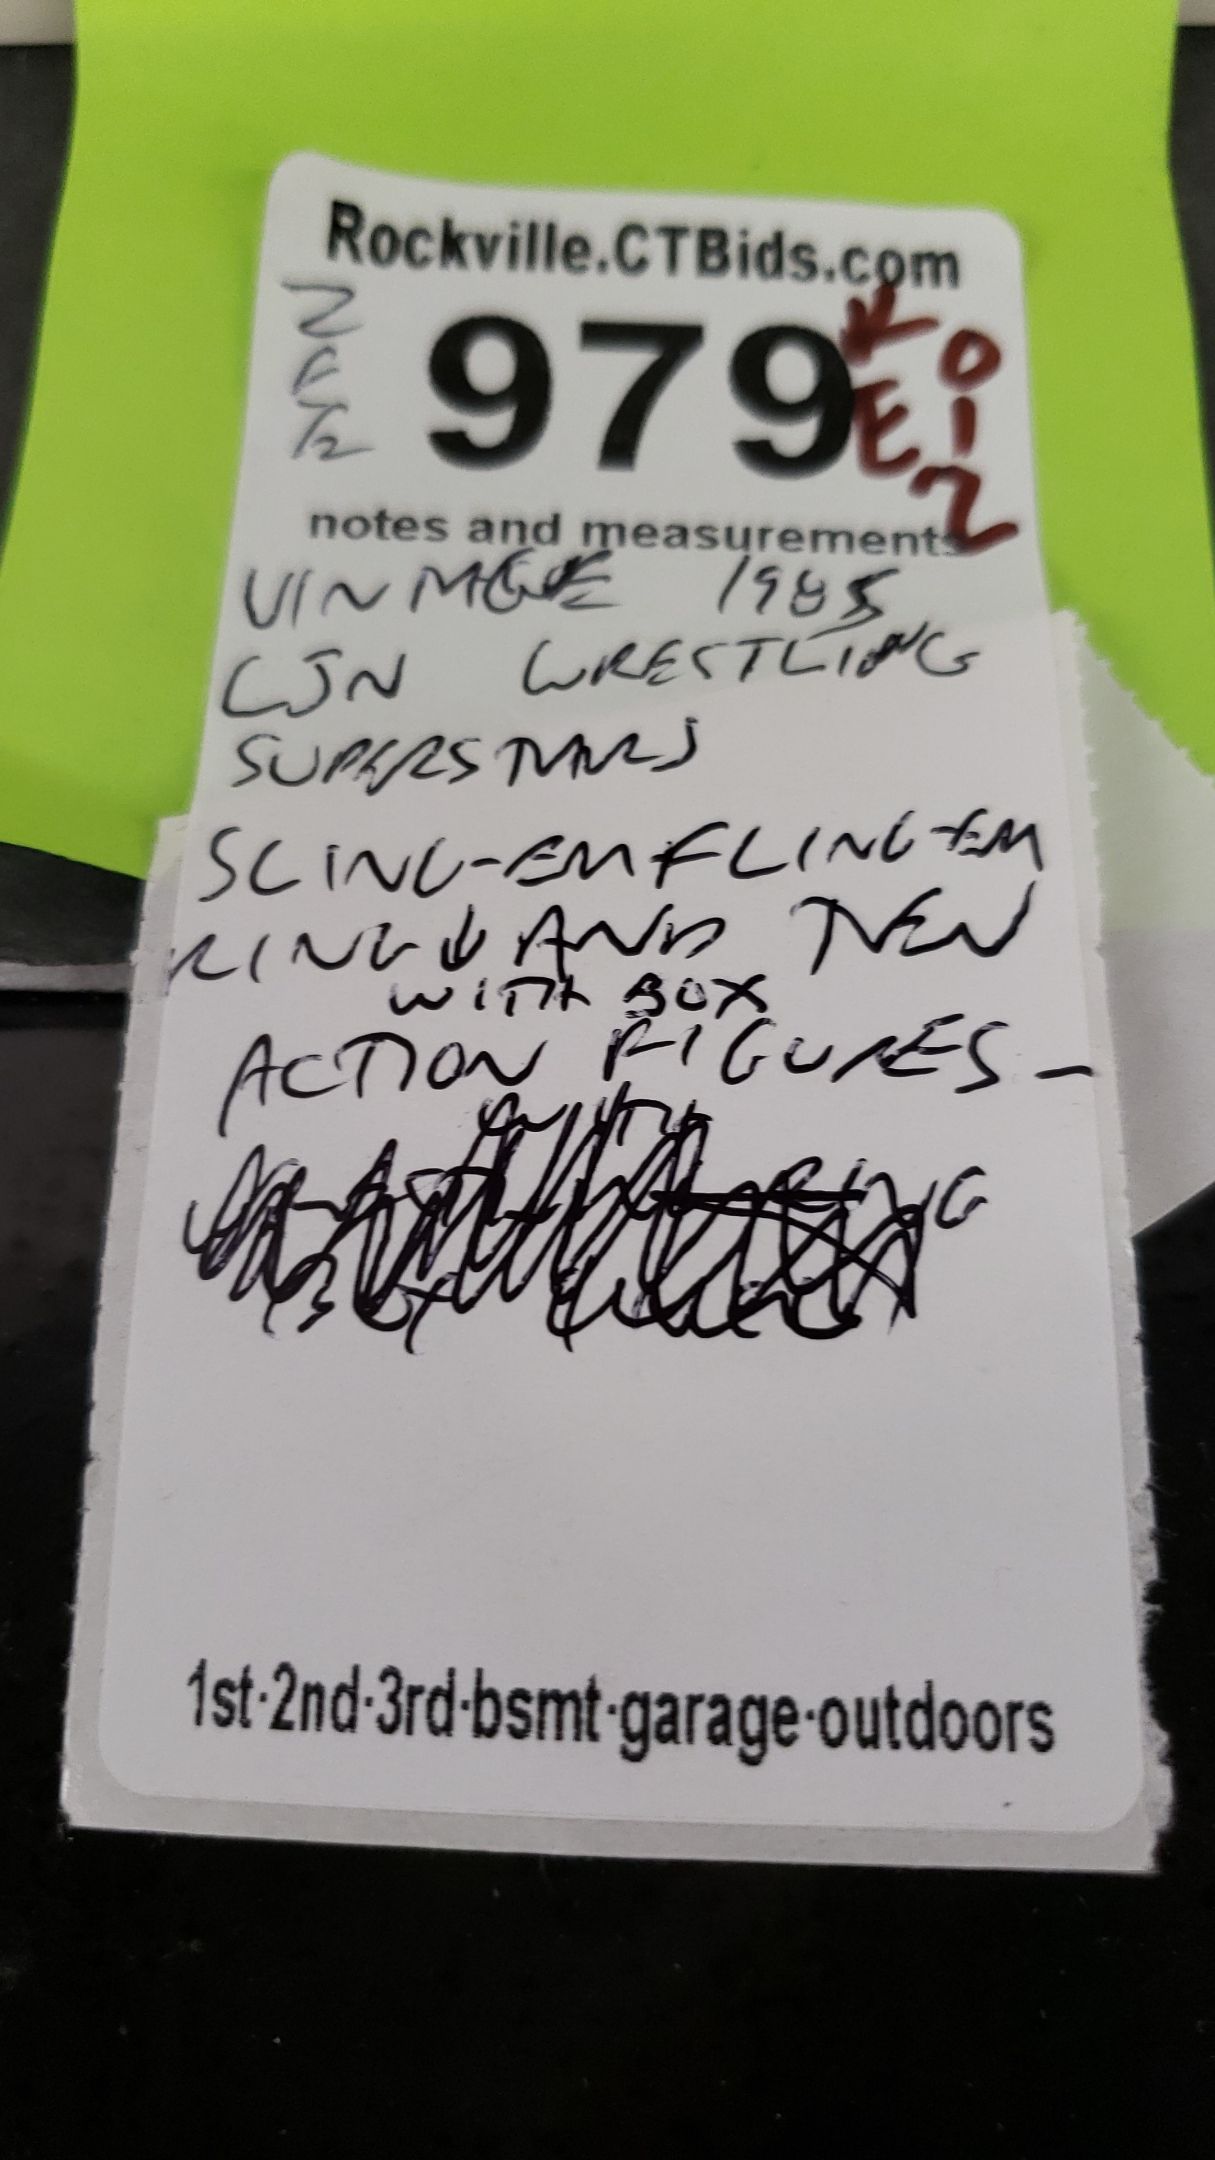 Rockville.CTBids.com
979
KE
012
notes and measurements
VINTAGE 1985
LJN WRESTLING
SUPERSTARS
SLING-EM FLING-EM
RING ↓ AND TEN
WITH BOX
ACTION FIGURES -
RING
1st·2nd·3rd·bsmt·garage·outdoors